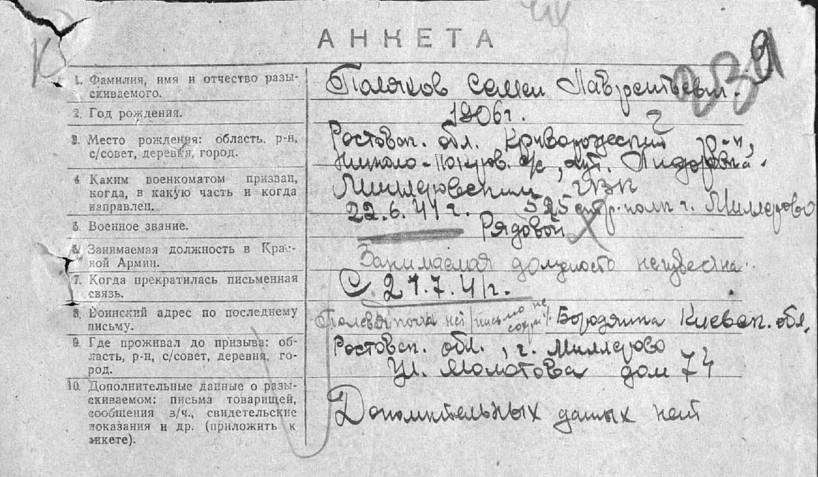 АНКЕТА
239
1. Фамилия, имя и отчество разы-
скиваемого.
Поляков Семен Лаврентьевич.
2. Год рождения.
1906г.
3. Место рождения: область, р-н,
с/совет, деревня, город.
Ростовск. обл. Криворожский р-н,
Николо-Покров. с/с, хут.
4. Каким военкоматом призван,
когда, в какую часть и когда
направлен.
Миллеровским ГВК
22.6.41г. 525 стр. полк г. Миллерово
5. Военное звание.
Рядовой
6. Занимаемая должность в Крас-
ной Армии.
Занимаемая должность неизвестна.
7. Когда прекратилась письменная
связь.
С 27.7.41г.
8. Воинский адрес по последнему
письму.
Полевая почта нет (письмо не сохр.) Бородянка Киевск. обл.
9. Где проживал до призыва: об-
ласть, р-н, с/совет, деревня, го-
род.
Ростовск. обл., г. Миллерово
ул. Молотова дом 74
10. Дополнительные данные о разы-
скиваемом: письма товарищей,
сообщения в/ч., свидетельские
показания и др. (приложить к
анкете).
Дополнительных данных нет